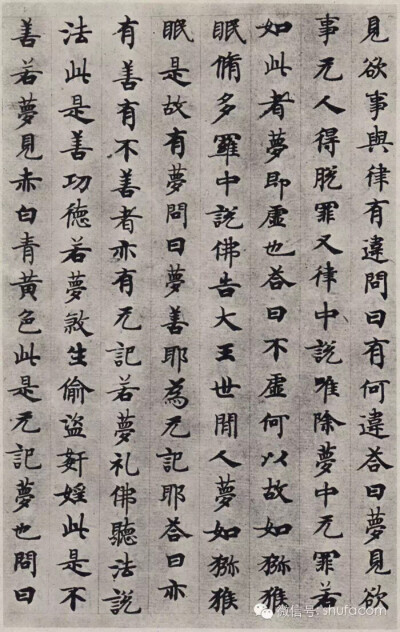 見欲事與律有違問曰有何違荅曰夢見欲
事无人得脱罪又律中說唯除夢中无罪若
如此者夢即虛也荅曰不虛何以故如猕猴
眠脩多羅中說佛告大王世間人夢如猕猴
眠是故有夢問曰夢善耶為无記耶荅曰亦
有善有不善者亦有无記若夢礼佛聽法說
法此是善功德若夢煞生偷盜奸婬此是不
善若夢見赤白青黃色此是无記夢也問曰
微信号: shufacom